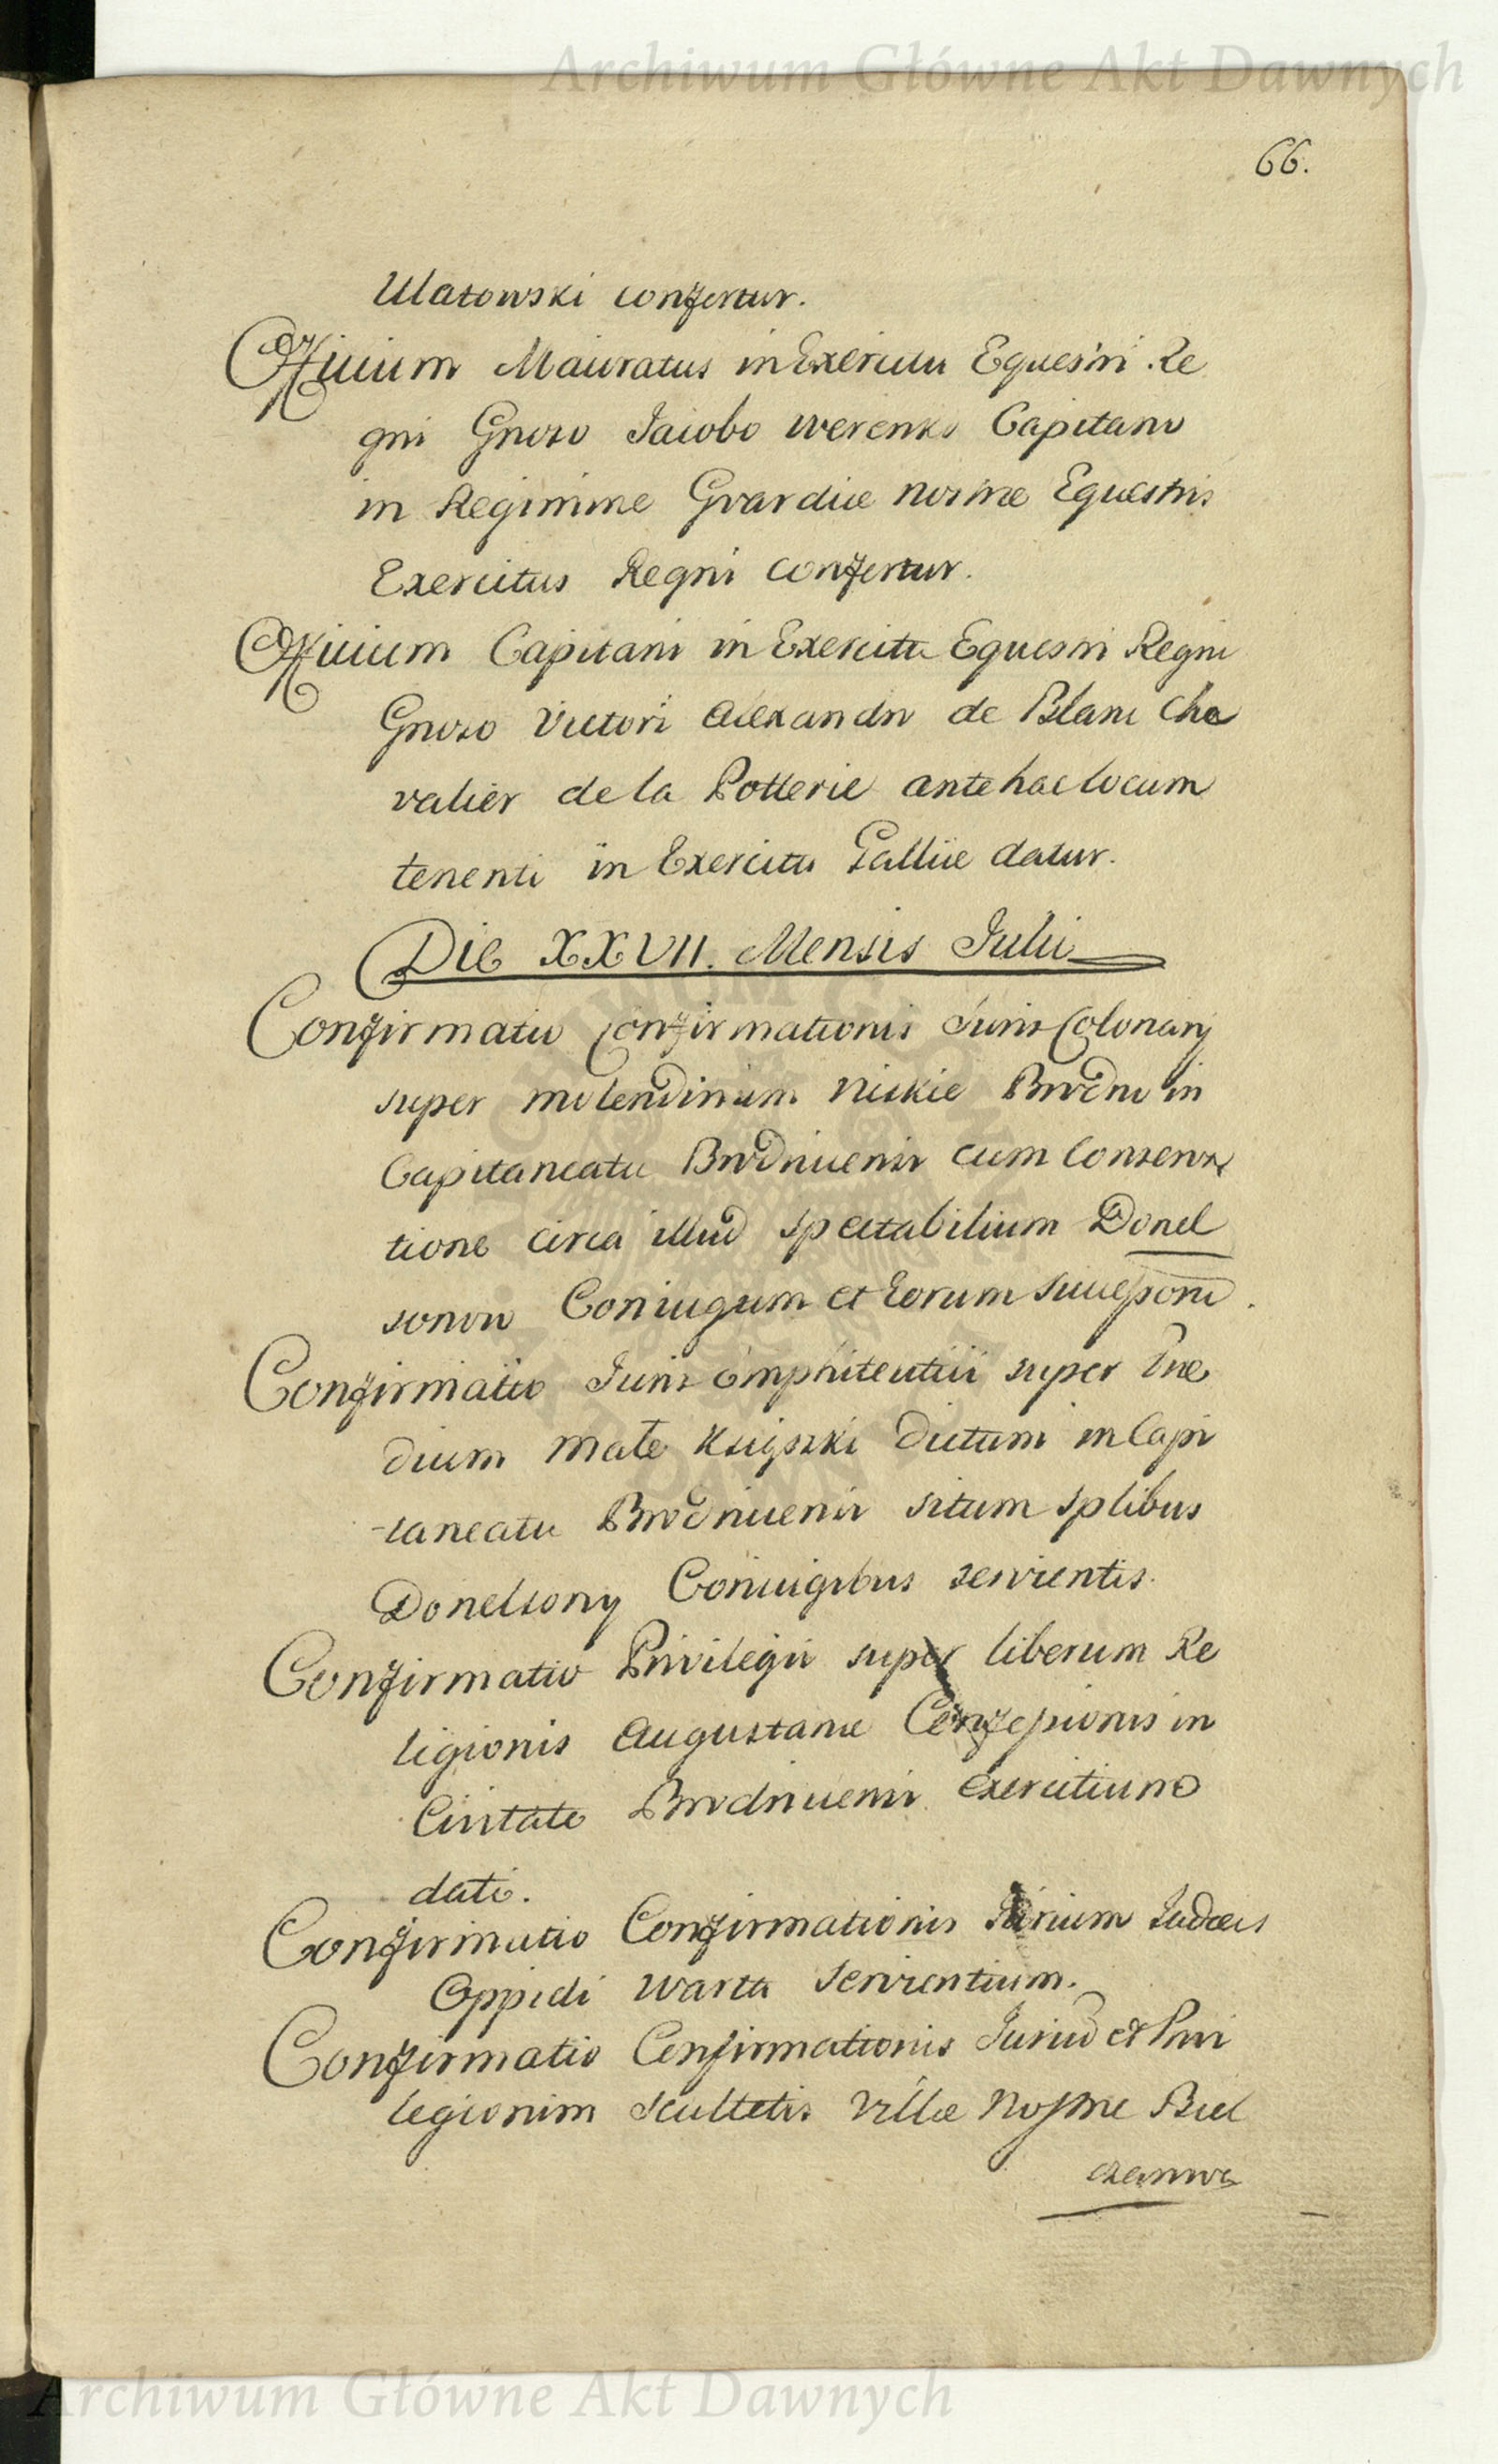 Archiwum Główne Akt Dawnych
66.
Ulatowski confertur.
Officium Maioratus in Exercitu Equestri Re
gni Gnoso Iacobo Werenko Capitano
in Regimine Gvardiæ nostræ Equestris
Exercitus Regni confertur.
Officium Capitani in Exercitu Equestri Regni
Gnoso Victori Alexandro de Blanc Che
valier de la Potterie antehac locum
tenenti in Exercitu Galliæ datur.
Die XXVII. Mensis Iulii
Confirmatio Confirmationis Iuris Colonarÿ
super molendinum Niskie Brodno in
Capitaneatu Brodnicensi cum Conserva
tione circa illud spectabilium Donel
sonow Coniugum et Eorum Successorũ.
Confirmatio Iuris Emphiteutici super Præ
dium Małe Książki dictum in Capi
taneatu Brodnicensi situm Splibus
Donelsony Coniugibus servientis.
Confirmatio Privilegii super liberum Re
ligionis Augustanæ Confessionis in
Civitate Brodnicensi exercitium
dati.
Confirmatio Confirmationis Iurium Iudæis
Oppidi Warta servientium.
Confirmatio Confirmationis Iuriũ et Privi
legiorum Scultetis Villæ Nostræ Biel
czanow
Archiwum Główne Akt Dawnych